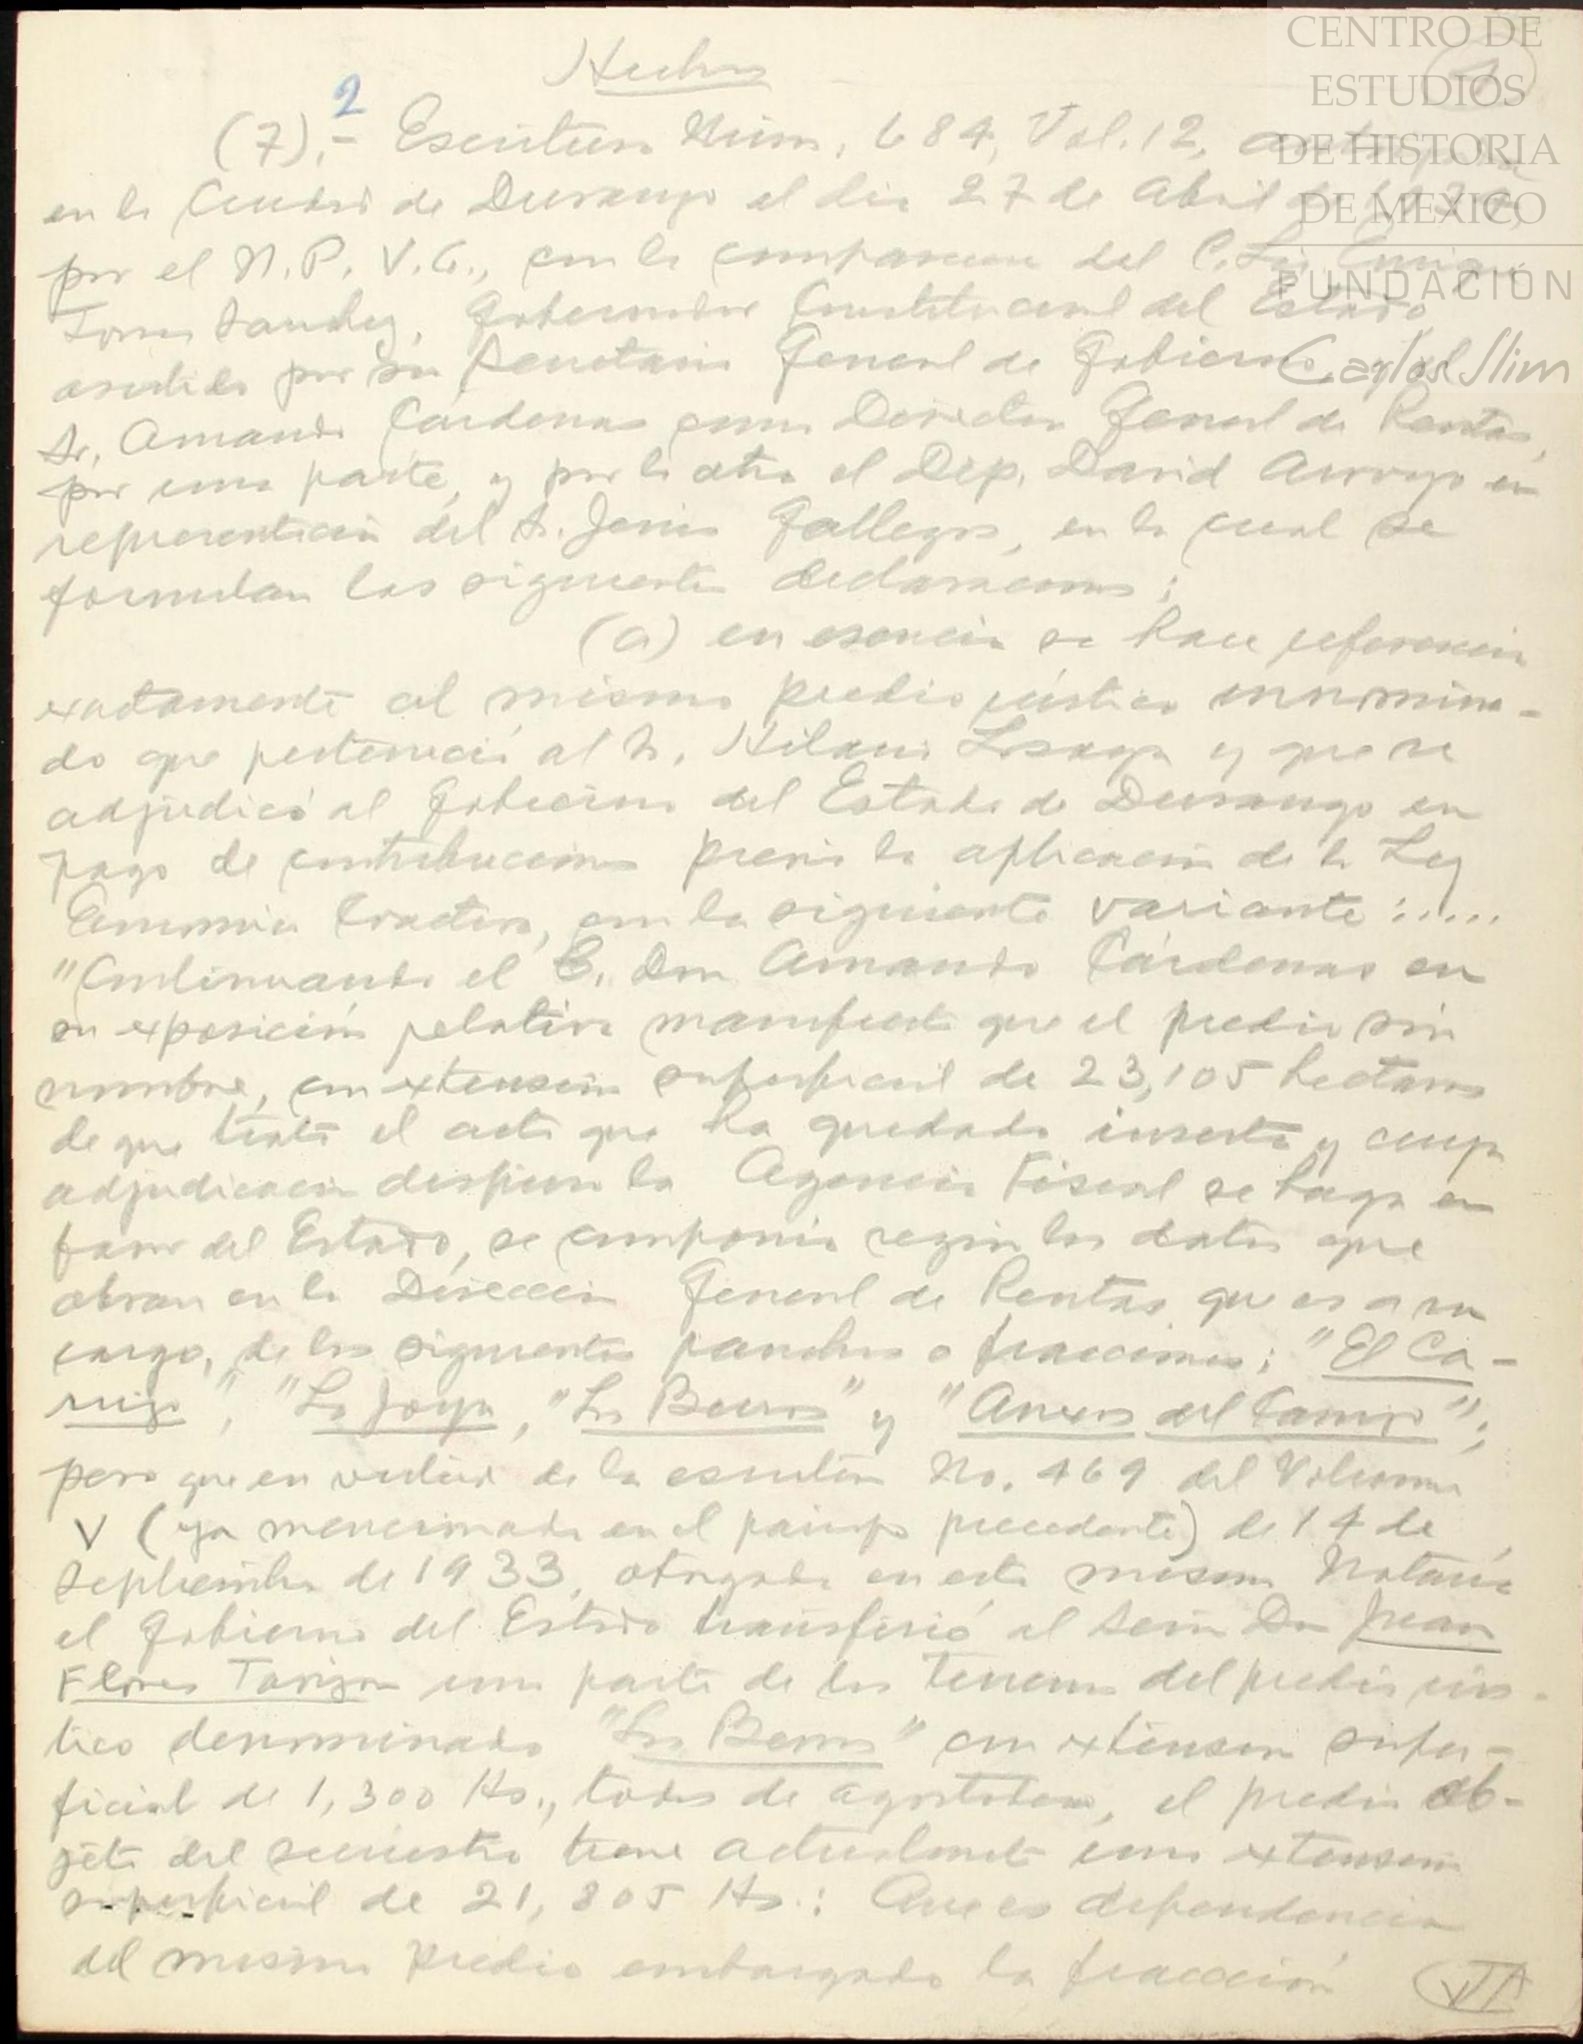 CENTRO DE
ESTUDIOS
DE HISTORIA
DE MEXICO
FUNDACIÓN
Carlos Slim
Hechos
2
(7).- Escritura Núm. 684, Vol. 12,
en la Ciudad de Durango el dia 27 de Abril de
por el N.P. V.G., con la comparecencia del C. Enrique
Torres Sanchez, Gobernador Constitucional del Estado
asistido por su Secretario General de Gobierno
Sr. Amando Cárdenas como Director General de Rentas,
por una parte, y por la otra el Dep. David Arroyo en
representación del Sr. Jesús Gallegos, en la cual se
formulan las siguientes declaraciones:
(a) en esencia se hace referencia
exactamente al mismo predio rústico innomina-
do que perteneció al Sr. Hilario Lozoya y que se
adjudicó al Gobierno del Estado de Durango en
pago de contribuciones previa la aplicación de la Ley
Económica Coactiva, con la siguiente variante :.....
"Continuando el C. Don Amando Cárdenas en
su exposición relativa manifiesta que el predio sin
nombre, con extensión superficial de 23,105 hectaras
de que trata el acta que ha quedado inserta y cuya
adjudicación dispuso la Agencia Fiscal se haga en
favor del Estado, se componía según los datos que
obran en la Dirección General de Rentas que es a su
cargo, de los siguientes ranchos o fracciones: "El Ca-
rrizo", "La Joya", "Los Berros" y "Anexos del Campo";
pero que en virtud de la escritura No. 469 del Volumen
V (ya mencionada en el párrafo precedente) de 14 de
Septiembre de 1933, otorgada en esta misma Notaría
el Gobierno del Estado transfirió al Señor Don Juan
Flores Tarizon una parte de los terrenos del predio rús-
tico denominado "Los Berros" con extensión super-
ficial de 1,300 Hs., todas de agostadero, el predio ob-
jeto del secuestro tiene actualmente una extensión
superficial de 21,805 Hs.: Que es dependencia
del mismo predio embargado la fracción